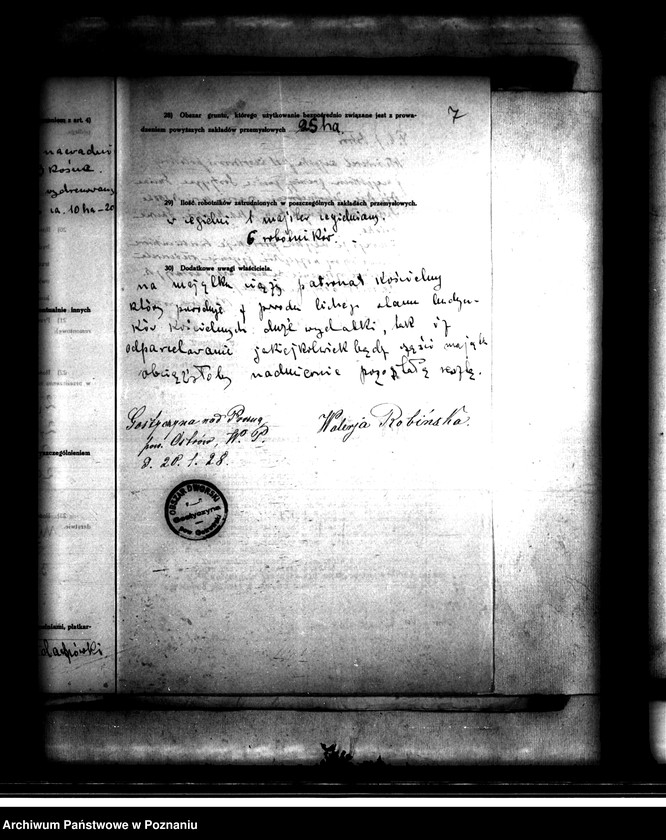 niem z art. 4)
nawadni
Kośció.
wydrenowany
ca. 10 ha – 20
entualnie innych
yszczególnieniem
edniami, płatkar-
7
28) Obszar gruntu, którego użytkowanie bezpośrednio związane jest z prowa-
dzeniem powyższych zakładów przemysłowych 25 ha
29) Ilość robotników zatrudnionych w poszczególnych zakładach przemysłowych.
w cegielni 1 majster cegielniany.
6 robotników.
30) Dodatkowe uwagi właściciela.
na majątku ciąży patronat kościelny
który powoduje z powodu lichego stanu budyn-
ków kościelnych duże wydatki, tak iż
odparcelowanie jakiejkolwiek bądź części majątk
obciążyłoby nadmiernie pozostałą resztę.
Gostyczyna nad Prosną
pow. Ostrów, W. P.
d. 20. 1. 28.
Walerja Robińska.
OBSZAR DWORSKI
Gostyczyna
pow. Ostrowski
Archiwum Państwowe w Poznaniu